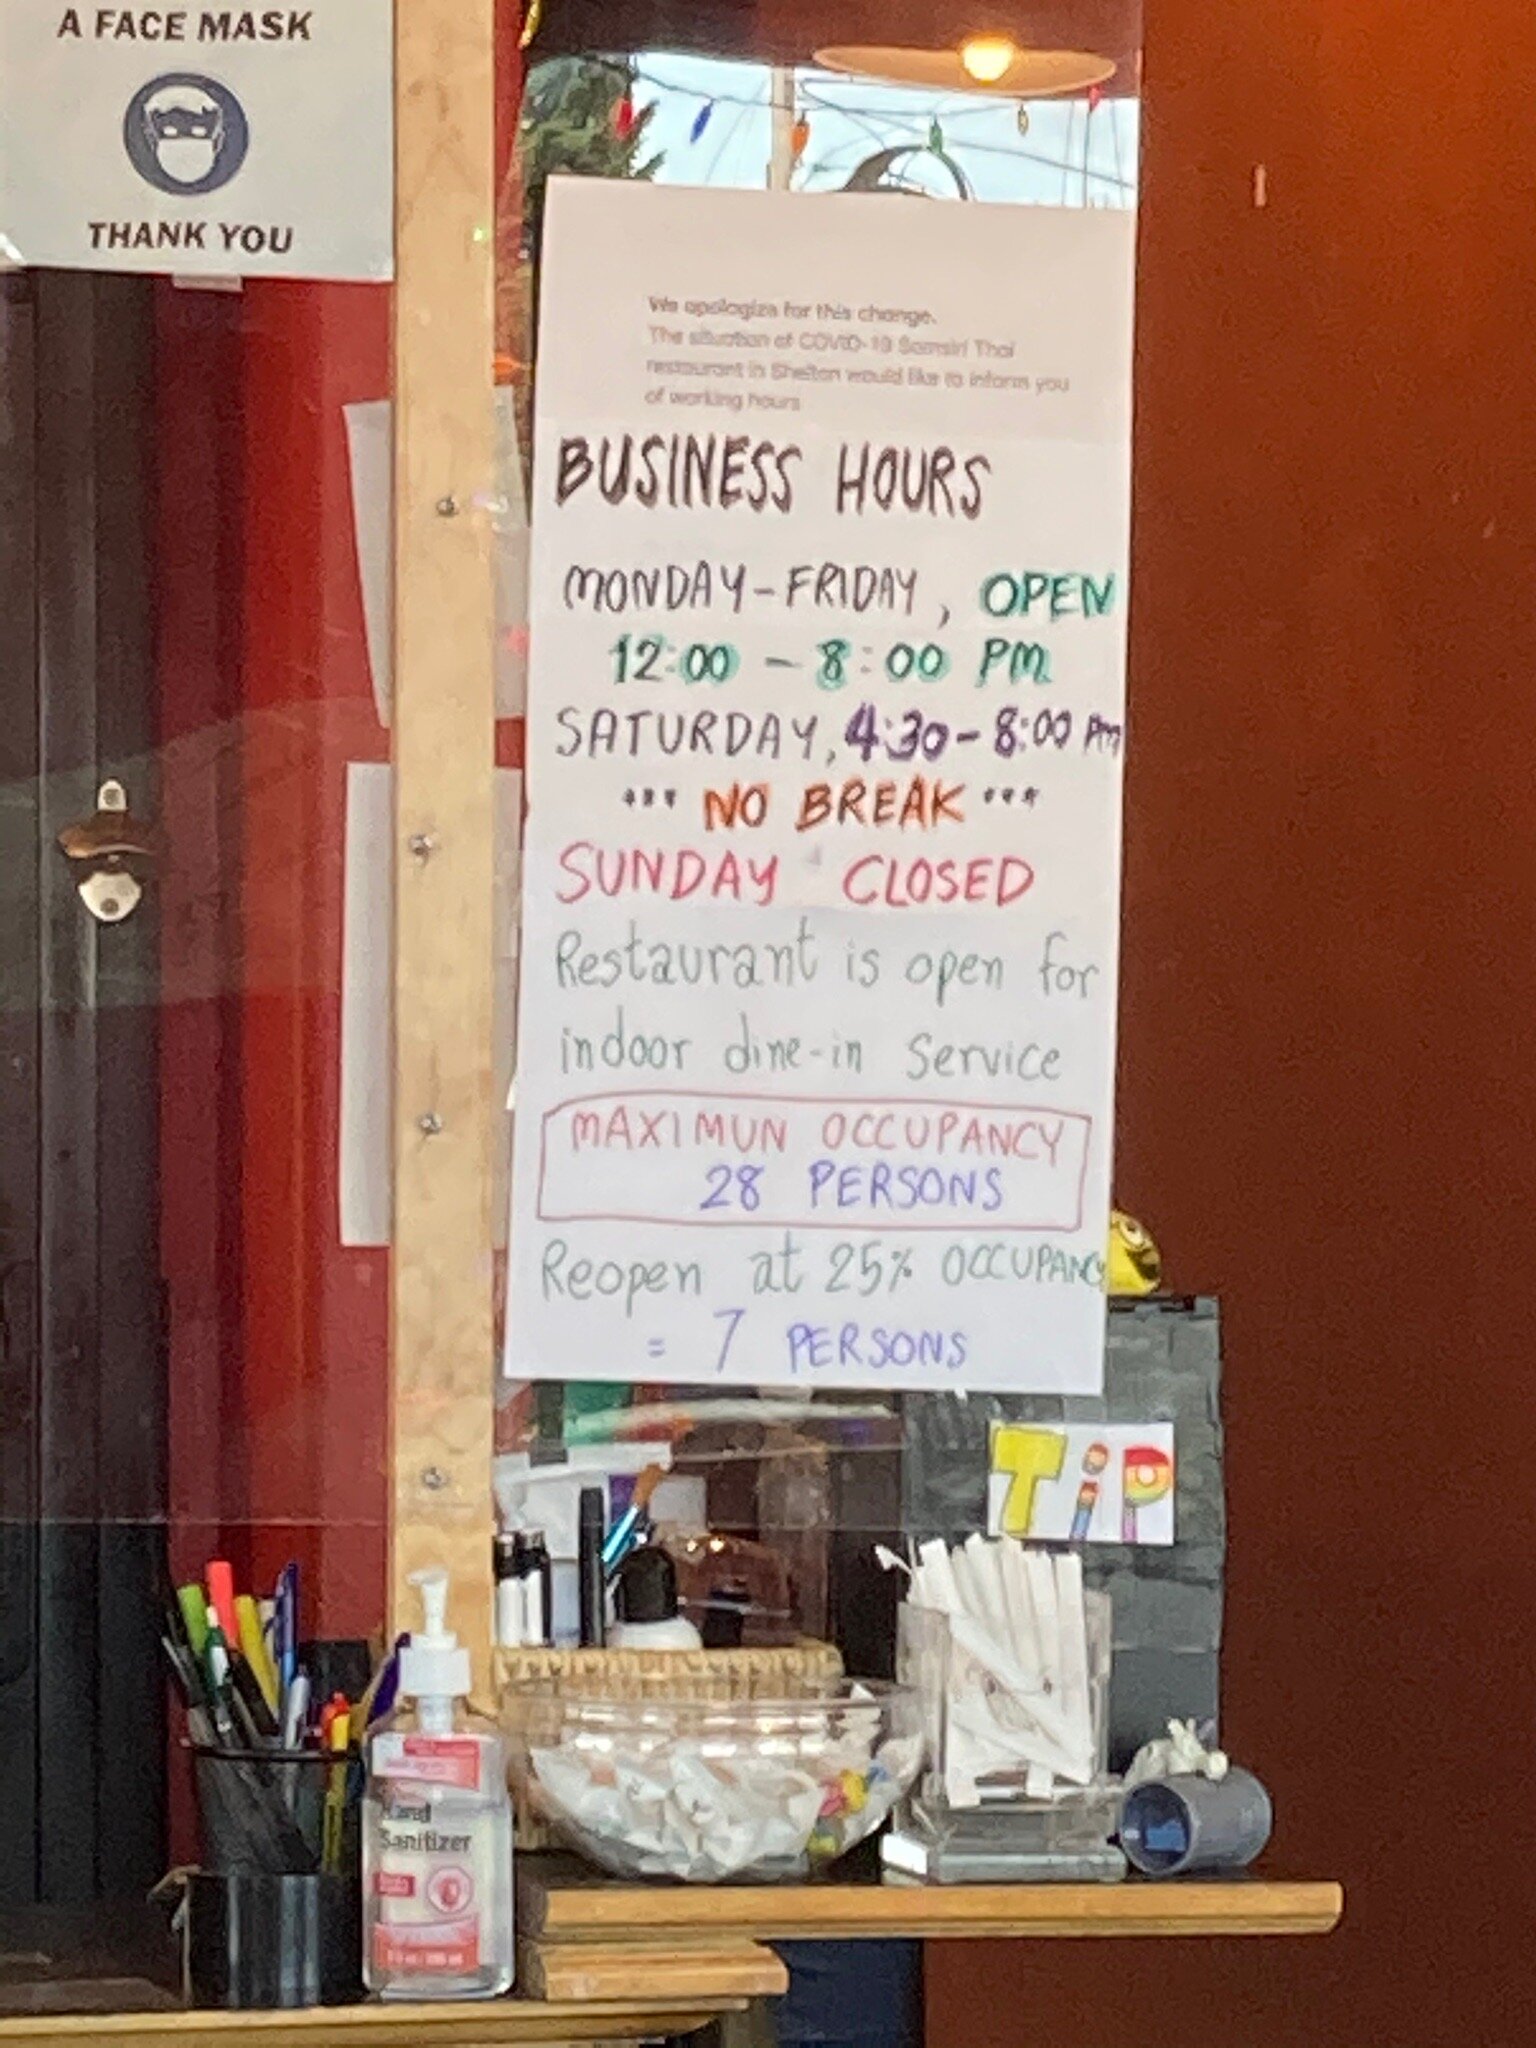 A FACE MASK
THANK YOU
We apologize for this change.
The situation of COVID-19 Samsiri Thai
restaurant in Shelton would like to inform you
of working hours
BUSINESS HOURS
MONDAY-FRIDAY, OPEN
12:00 - 8:00 PM
SATURDAY, 4:30-8:00 PM
*** NO BREAK ***
SUNDAY CLOSED
Restaurant is open for
indoor dine-in service
MAXIMUN OCCUPANCY
28 PERSONS
Reopen at 25% OCCUPANCY
= 7 PERSONS
TiP
Hand
Sanitizer